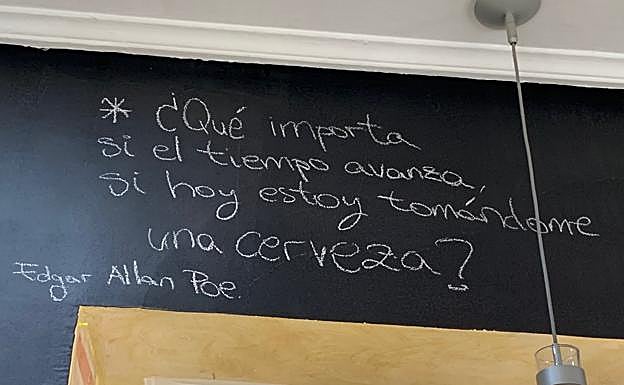 * ¿Qué importa
si el tiempo avanza,
si hoy estoy tomándome
una cerveza?
Edgar Allan Poe.